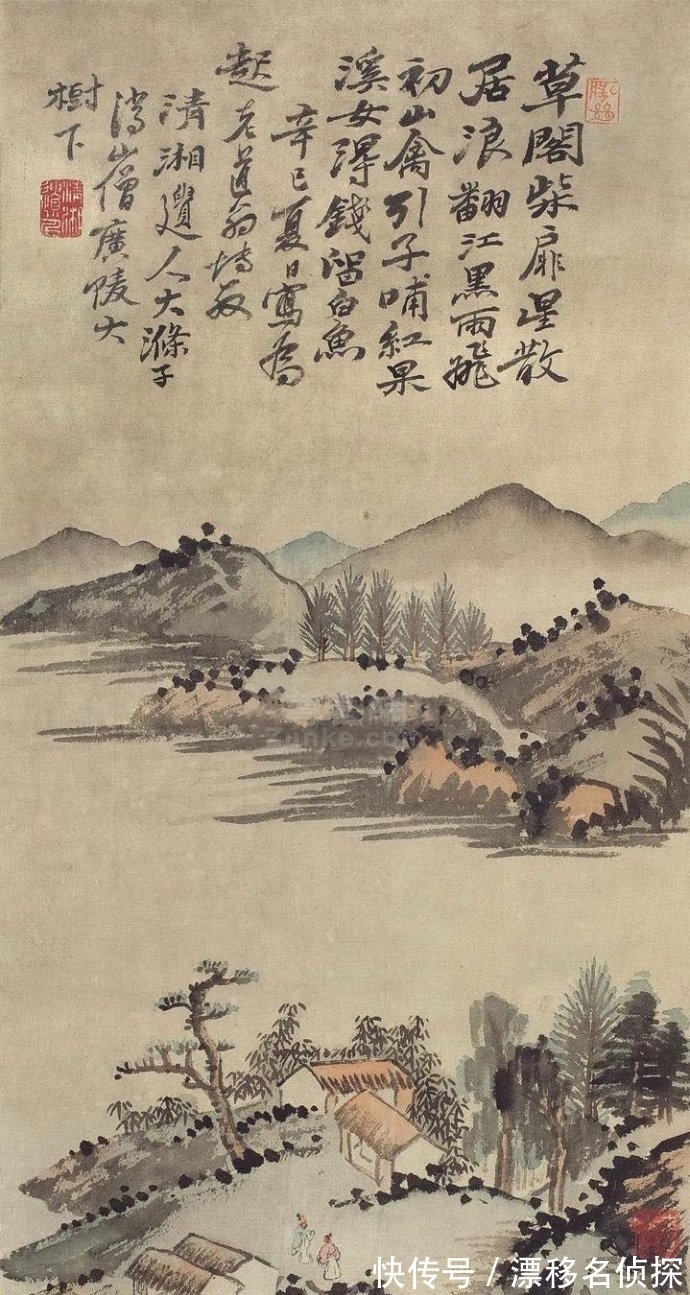 草閣柴扉星散
居浪翻江黑雨飛
初山禽引子哺紅果
溪女得錢留白魚
辛巳夏日寫為
老道翁博教
清湘遺人大滌子
濟山僧廣陵大
樹下
Zunke.com
快传号 / 漂移名侦探